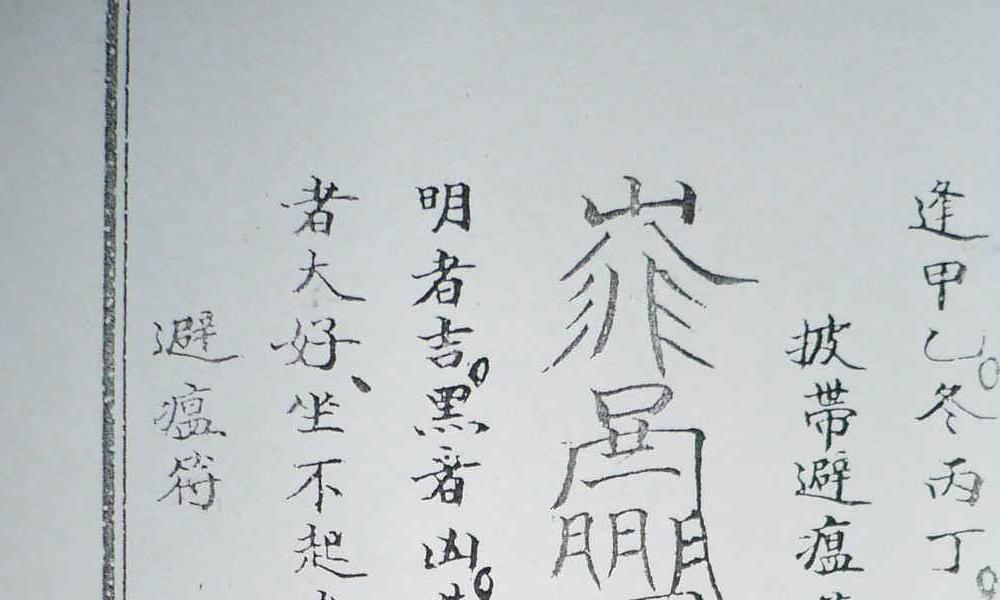 逢甲乙。冬丙丁。
披帶避瘟
明者吉。黑者凶。
者大好、坐不起
避瘟符